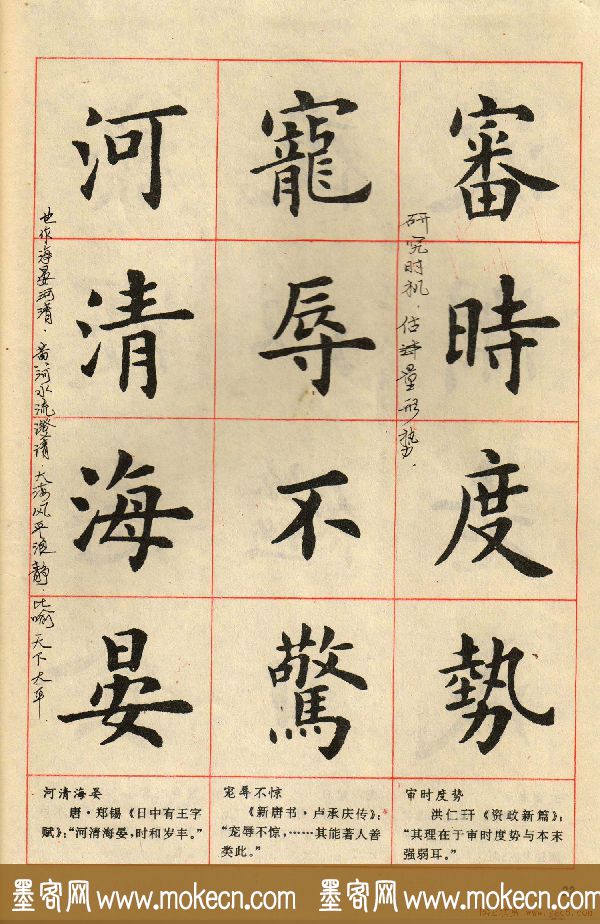 審時度勢
研究时机·估计量形势
寵辱不驚
河清海晏
也作海晏河清·黄河水流澄清·大海风平浪静·比喻天下太平
审时度势
洪仁玕《资政新篇》:
“其理在于审时度势与本末
强弱耳。”
宠辱不惊
《新唐书·卢承庆传》:
“宠辱不惊,……其能著人善
类此。”
河清海晏
唐·郑锡《日中有王字
赋》:“河清海晏,时和岁丰。”
墨客网 www.mokecn.com 墨客网 www.mokecn.com